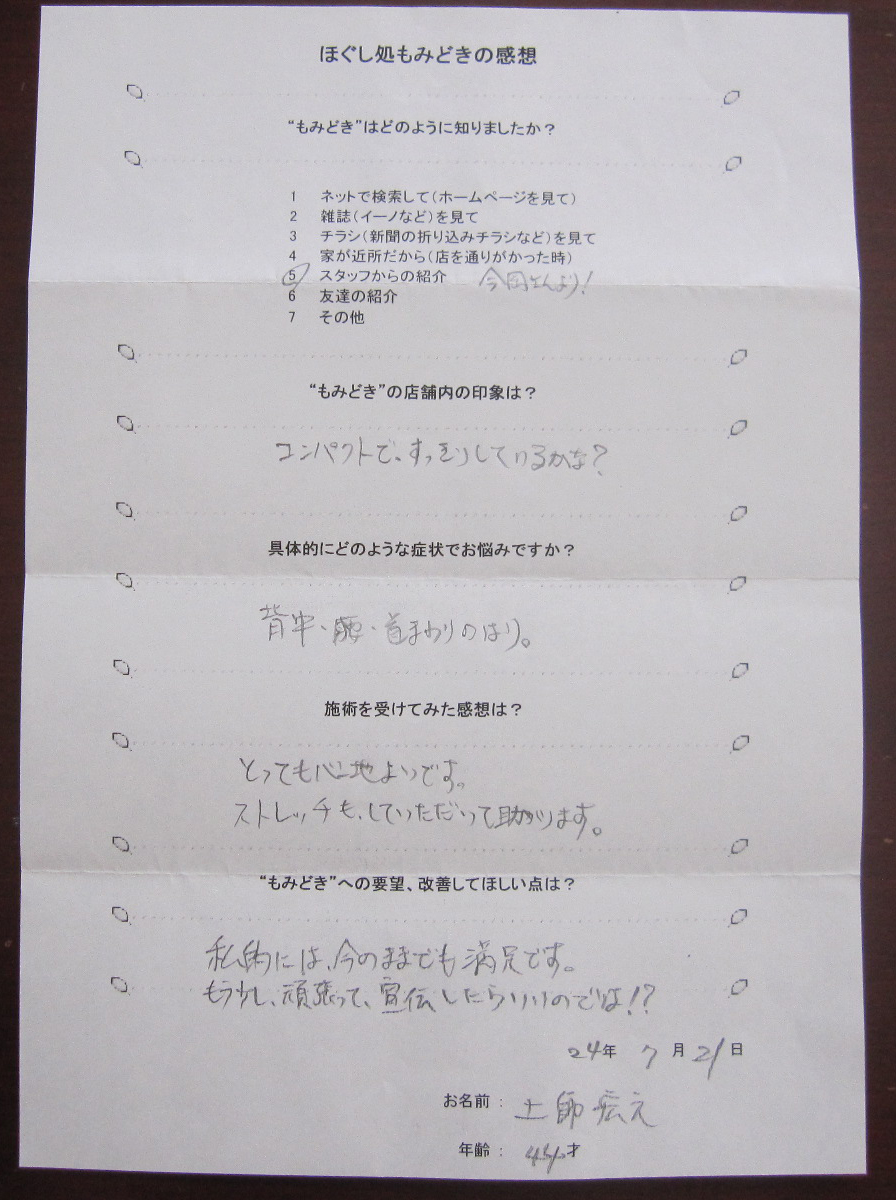 ほぐし処もみどきの感想
“もみどき”はどのように知りましたか？
1 ネットで検索して（ホームページを見て）
2 雑誌（イーノなど）を見て
3 チラシ（新聞の折り込みチラシなど）を見て
4 家が近所だから（店を通りがかった時）
5 スタッフからの紹介 今岡さんより！
6 友達の紹介
7 その他
“もみどき”の店舗内の印象は？
コンパクトで、すっきりしているかな？
具体的にどのような症状でお悩みですか？
背中・腰・首まわりのはり。
施術を受けてみた感想は？
とっても心地よいです。
ストレッチも、していただいて助かります。
“もみどき”への要望、改善してほしい点は？
私的には、今のままでも満足です。
もう少し、頑張って、宣伝したらいいのでは！？
24年 7月 21日
お名前： 土師宏え
年齢： 才